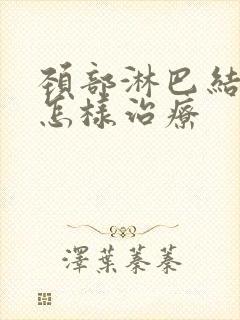 頸部淋巴結
怎樣治療
澤葉蓁蓁